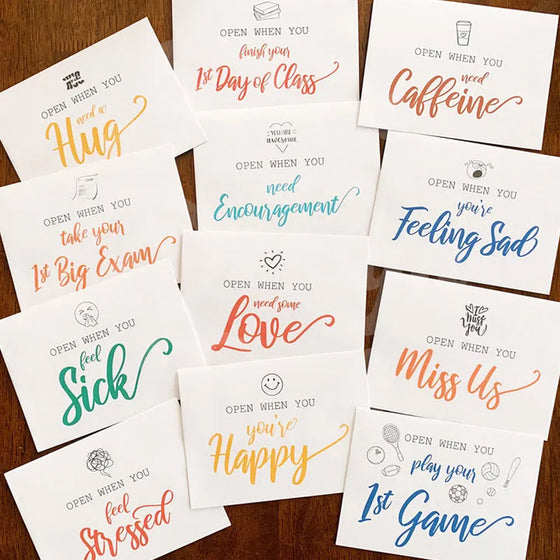 OPEN WHEN YOU
need a
Hug
OPEN WHEN YOU
finish your
1st Day of Class
OPEN WHEN YOU
need
Caffeine
OPEN WHEN YOU
take your
1st Big Exam
YOU ARE
awesome
OPEN WHEN YOU
need
Encouragement
OPEN WHEN YOU
you're
Feeling Sad
OPEN WHEN YOU
feel
Sick
OPEN WHEN YOU
need some
Love
I
Miss
You
OPEN WHEN YOU
Miss Us
OPEN WHEN YOU
feel
Stressed
OPEN WHEN YOU
you're
Happy
OPEN WHEN YOU
play your
1st Game